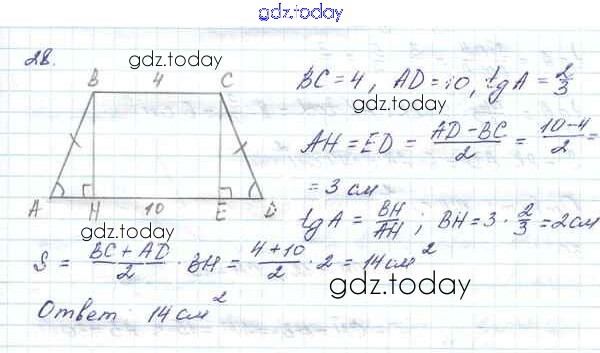 gdz.today
28.
gdz.today
B 4 C
BC = 4, AD = 10, tg A = 2/3
gdz.today
AH = ED = (AD - BC)/2 = (10 - 4)/2 =
= 3 см
A H 10 E D
tg A = BH/AH ; BH = 3 · 2/3 = 2 см
gdz.today
S = (BC + AD)/2 · BH = (4 + 10)/2 · 2 = 14 см²
gdz.today
Ответ: 14 см²